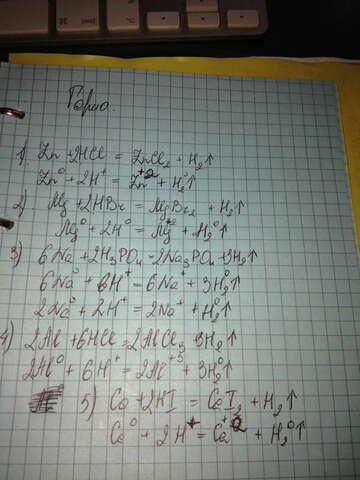 1) Zn + 2HCl = ZnCl₂ + H₂↑
Zn⁰ + 2H⁺ = Zn⁺² + H₂⁰↑
2) Mg + 2HBr = MgBr₂ + H₂↑
Mg⁰ + 2H⁰ = Mg⁺² + H₂⁰↑
3) 6Na + 2H₃PO₄ = 2Na₃PO₄ + 3H₂↑
6Na⁰ + 6H⁺ = 6Na⁺ + 3H₂⁰↑
2Na⁰ + 2H⁺ = 2Na⁺ + H₂⁰↑
4) 2Al + 6HCl = 2AlCl₃ 3H₂↑
2Al⁰ + 6H⁺ = 2Al⁺³ + 3H₂⁰↑
5) Ca + 2HI = CaI₂ + H₂↑
Ca⁰ + 2H⁺ = Ca⁺² + H₂⁰↑